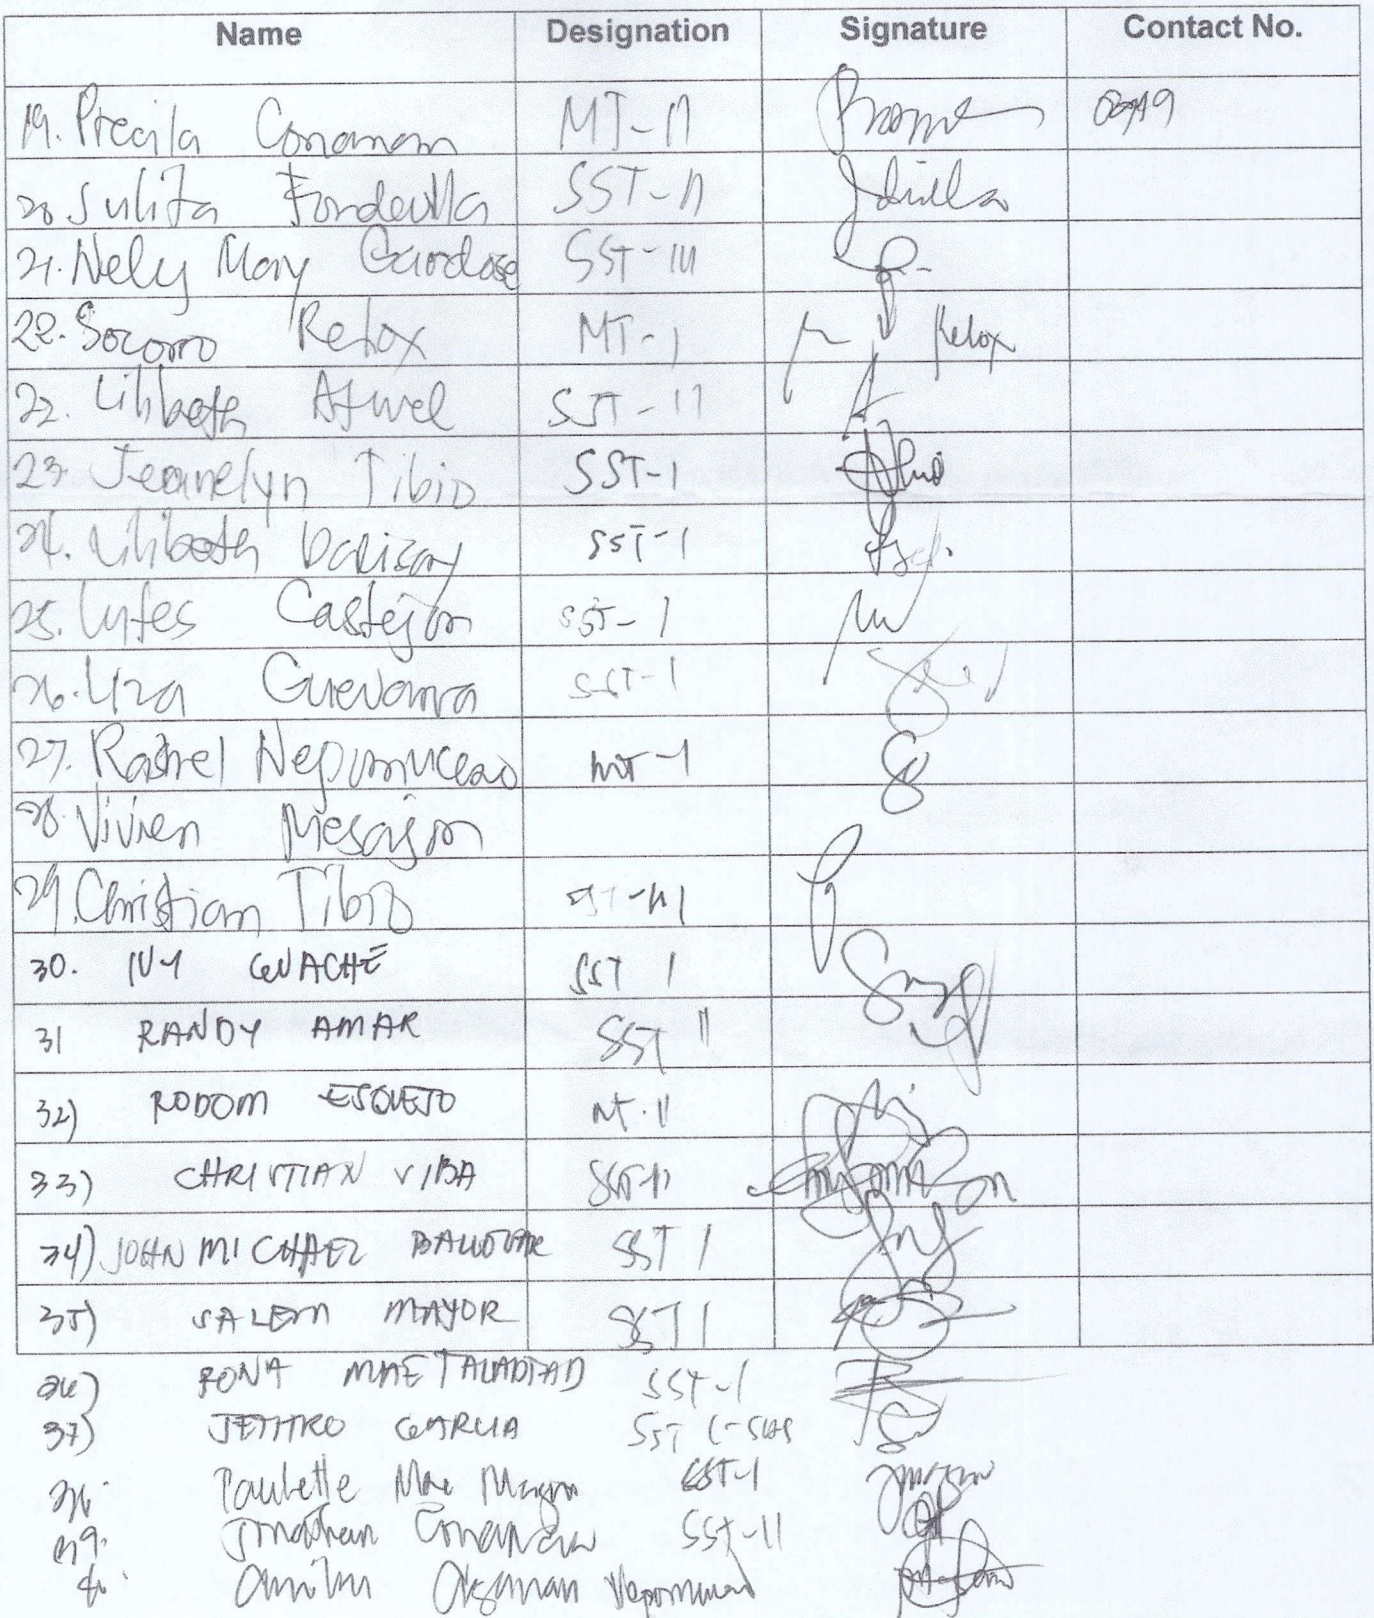 Name Designation Signature Contact No.
19. Precila Conanan MT-II
20 Julita Fondevilla SST-II
21. Nely May Gardose SST-III
22. Socorro Relox MT-I Relox
22. Lilibeth Atwel SST-II
23. Jeanelyn Tibio SST-I
24. Lilibeth Darisay SST-I
25. Castejon SST-I
26. Liza Guevarra SST-I
27. Rachel Nepomuceno MT-I
28. Vivien Mesajon
29. Christian Tibio
30. IVY GUACHE SST I
31 RANDY AMAR SST II
32) RODOM ESQUEJO MT-II
33) CHRISTIAN VIBA SST-II
34) JOHN MICHAEL SST I
35) SALEM MAYOR SST I
36) RONA MAE SST-I
37) JETHRO GARCIA SST I-SHS
38. Paulette Mae SST-I
39. Jonathan SST-II
40. Nepomuceno